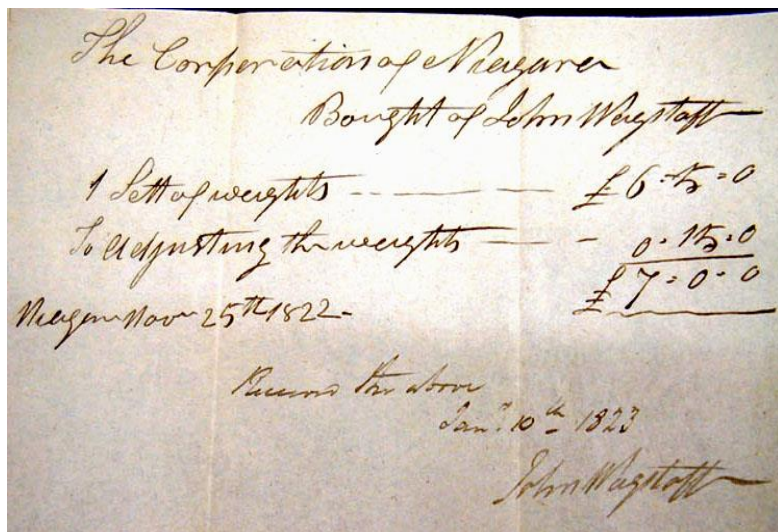 The Corporation of Niagara
Bought of John Wagstaff
1 Sett of weights — — — £6=5=0
To adjusting the weights — — - 0=15=0
£7=0=0
Niagara Novr 25th 1822-
Received the above
Jany. 10th 1823
John Wagstaff